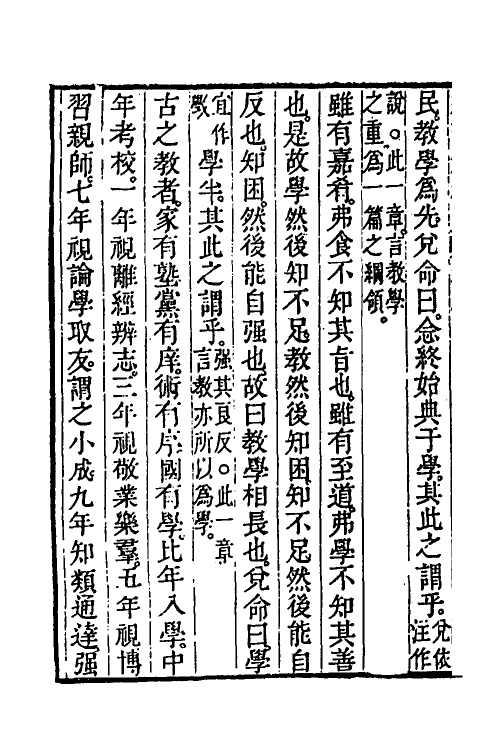 民。教學爲先。兌命曰。念終始典于學。其此之謂乎。兌依注作
說。○此一章。言教學之重。爲一篇之綱領。
雖有嘉肴。弗食不知其旨也。雖有至道。弗學不知其善
也。是故學然後知不足。教然後知困。知不足然後能自
反也。知困。然後能自强也。故曰教學相長也。兌命曰。學
宜作斆學半。其此之謂乎。强其良反。○此一章言教亦所以爲學。
古之教者。家有塾。黨有庠。術有序。國有學。比年入學。中
年考校。一年視離經辨志。三年視敬業樂羣。五年視博
習親師。七年視論學取友。謂之小成。九年知類通達强